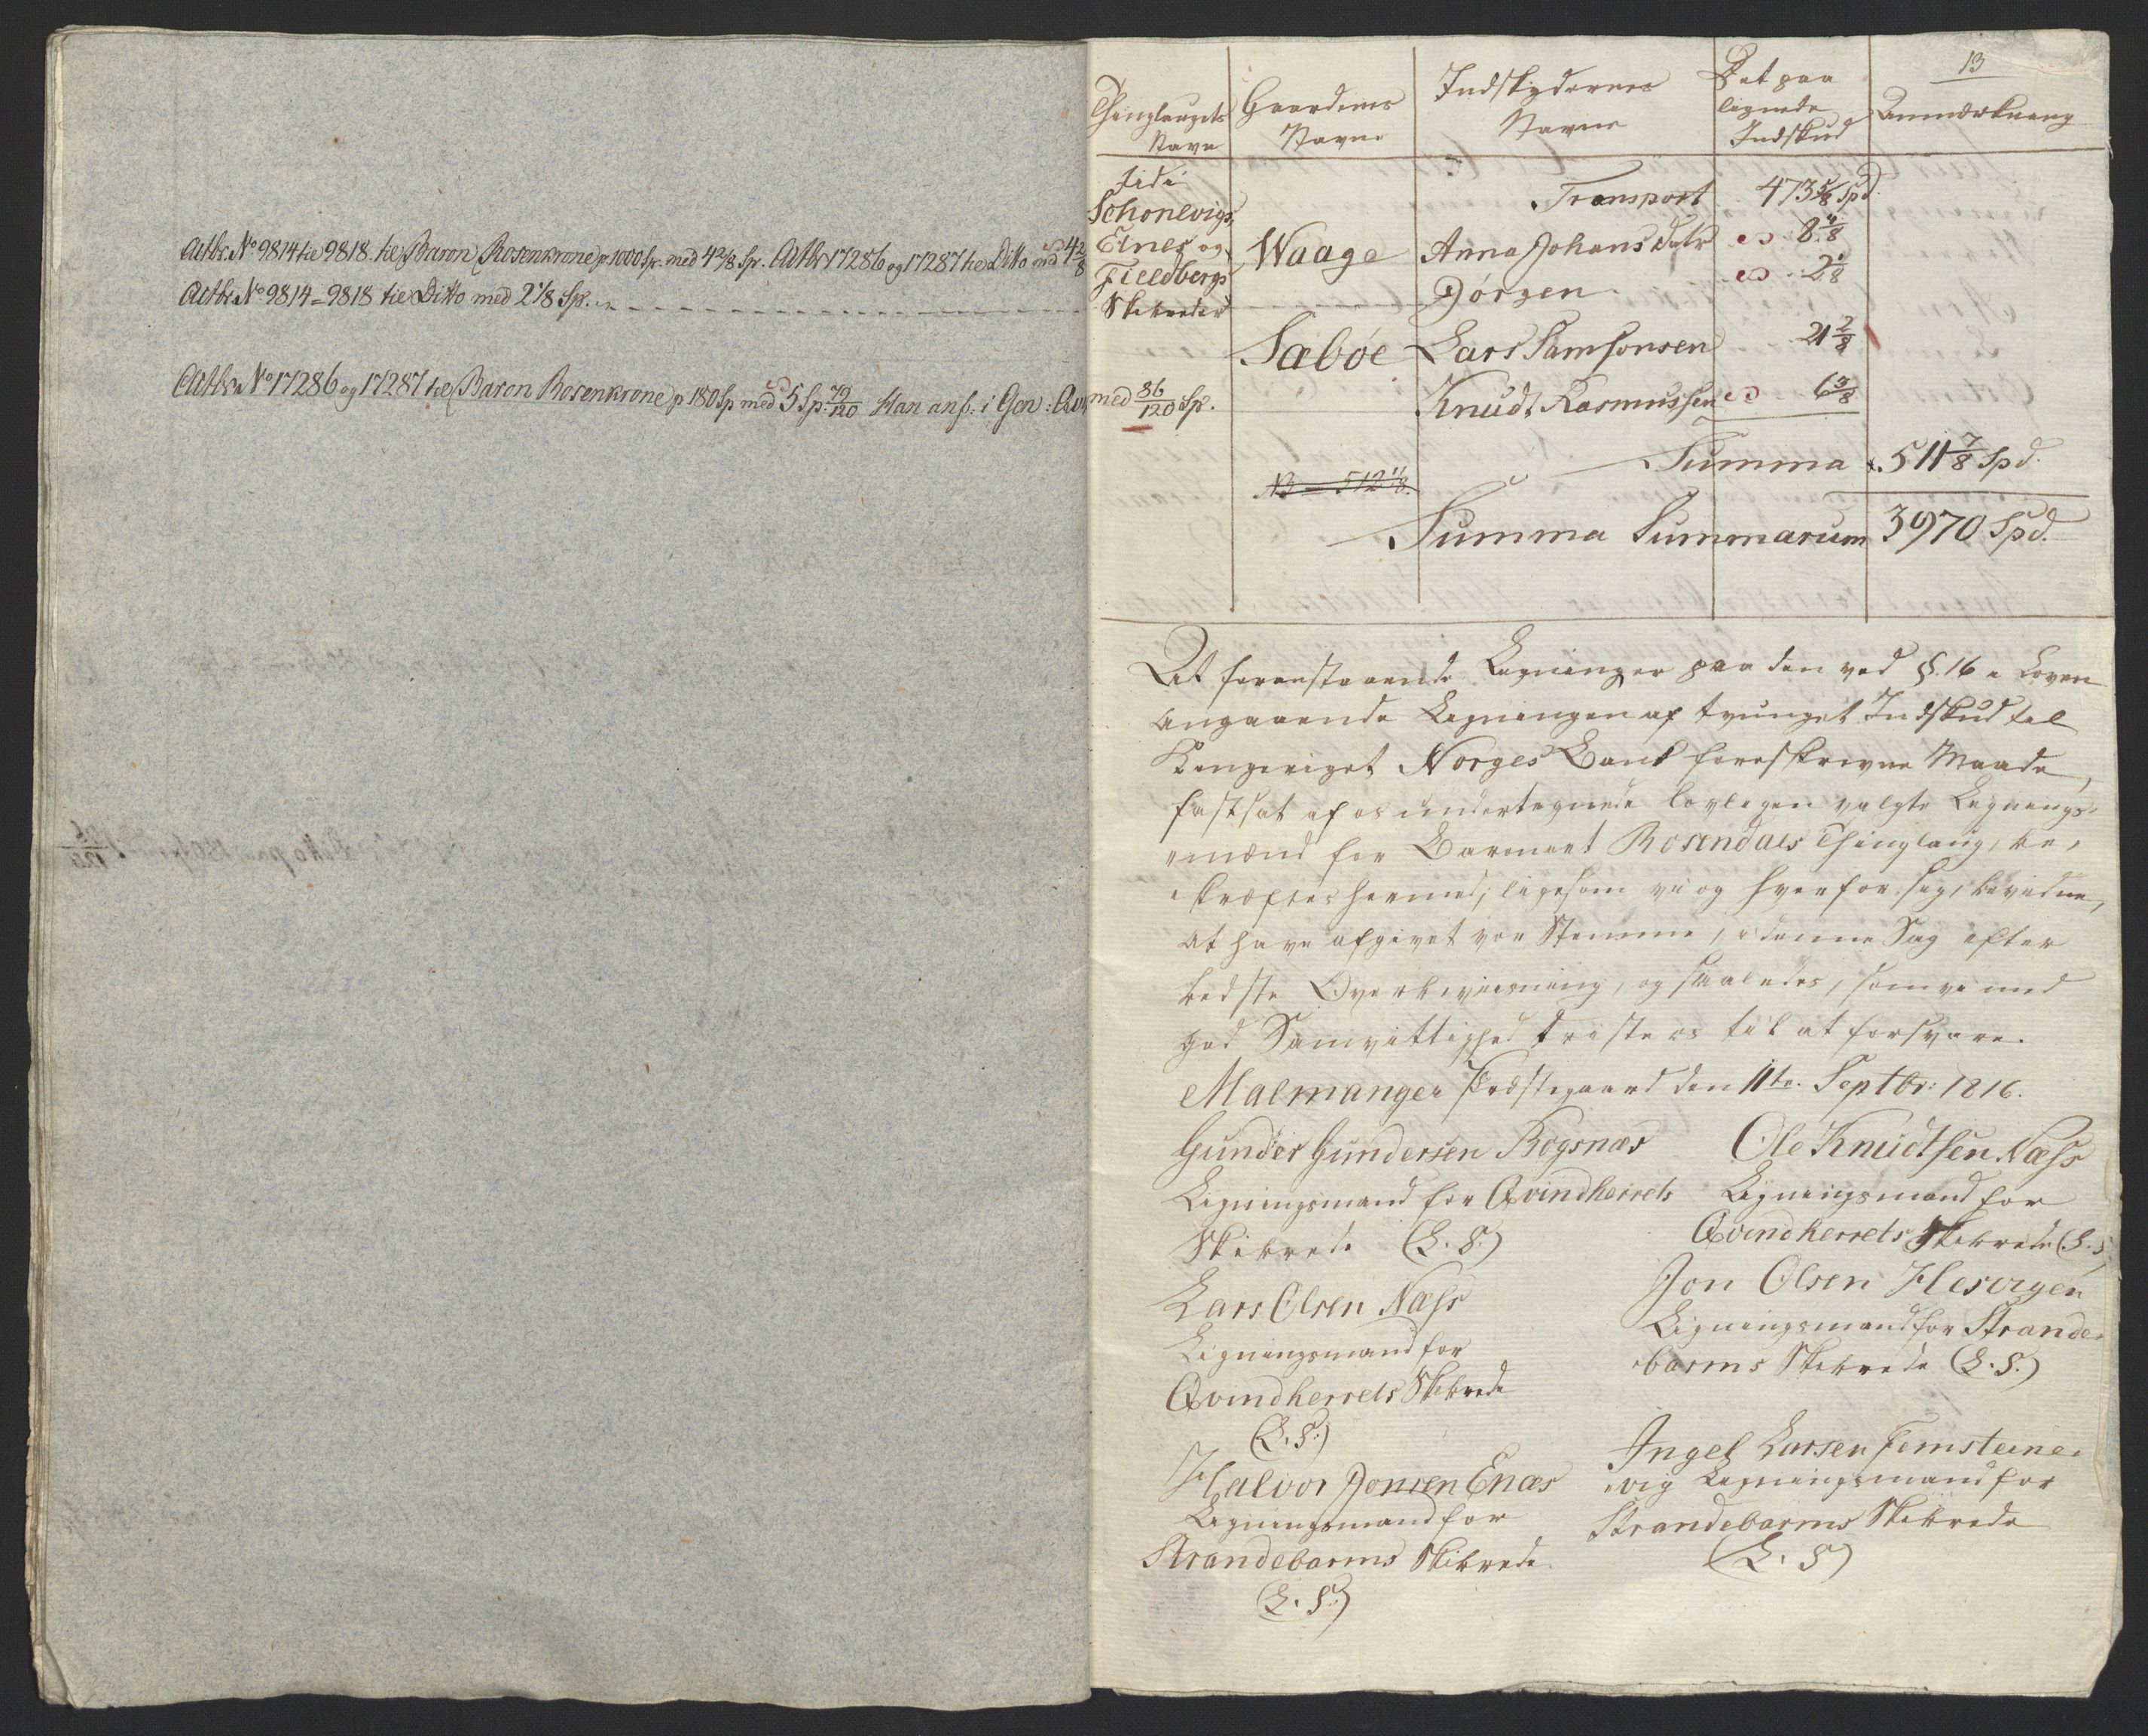 Actbr. No 9814 til 9818 til Baron Rosenkrone p 1000 Sp. med 4 2/8 Sp. Actbr 17286 og 17287 til Ditto med 4 2/8
Actbr. No 9814 - 9818 til Ditto med 2 1/8 Sp.
Actbr No 17286 og 17287 til Baron Rosenkrone p 180 Sp med 5 Sp. 79/120 Han anf: i Gen: med 86/120 Sp.
13
Thinglaugets Navn
Gaardenes Navne
Indskydernes Navne
Det paa lignede Indskud
Anmærkning
Schonevigs,
Etnes og
Fieldbergs
Skibreder
Transport 473 5/8 Spd.
Waage Anna Johansdatr 8 4/8
Jörgen 2 1/8
Sæböe Lars Samsonsen 21 2/8
Knudt Rasmussen 6 3/8
Summa 511 7/8 Spd.
NB 512 4/8.
Summa Summarum 3970 Spd.
At foranstaaende Ligninger paa den ved §. 16 i Loven
angaaende Ligningen af tvunget Indskud til
Kongeriget Norges Bank foreskrevne Maade,
fastsat af os undertegnede lovligen valgte Lignings-
mænd for Baroniet Rosendals Thinglaug, be-
kræftes hermed; ligesom vi og hver for sig, bevidne,
at have afgivet vor Stemme, i denne Sag efter
bedste Overbeviisning, og saaledes, som vi med
god Samvittighed trøste os til at forsvare.
Malmanger Præstegaard den 11te. Septbr: 1816.
Gunder Gundersen Rogsnæs
Ligningsmand for Qvindherrets
Skibrede (L. S.)
Ole Knudtsen Næss
Ligningsmand for
Qvindherrets Skibrede (L. S.)
Lars Olsen Næss
Ligningsmand for
Qvindherrets Skibrede
(L. S.)
Jon Olsen Hesvigen
Ligningsmand for Strande-
barms Skibrede (L. S.)
Halvor Jonsen Enæs
Ligningsmand for
Strandebarms Skibrede
(L. S.)
Ingel Larsen Femsteine-
vig Ligningsmand for
Strandebarms Skibrede
(L. S)